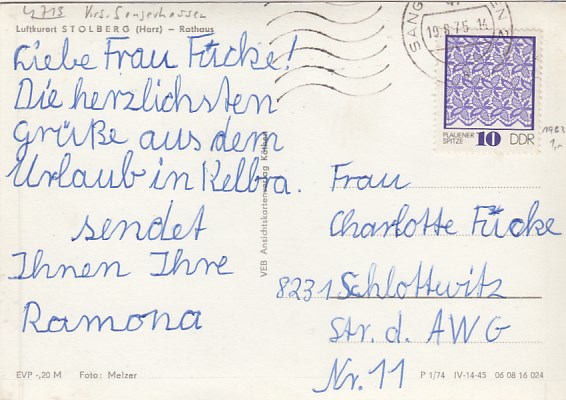 4713 Krs. Sangerhausen
Luftkurort STOLBERG (Harz) – Rathaus
Liebe Frau Fücke!
Die herzlichsten
Grüße aus dem
Urlaub in Kelbra.
sendet
Ihnen Ihre
Ramona
EVP -,20 M Foto: Melzer
VEB Ansichtskartenverlag Köthen
SANG EN
19.8.75.14
PLAUENER
SPITZE 10 DDR
1963
1,-
Frau
Charlotte Fücke
8231 Schlottwitz
Str. d. AWG
Nr. 11
P 1/74 IV-14-45 06 08 16 024